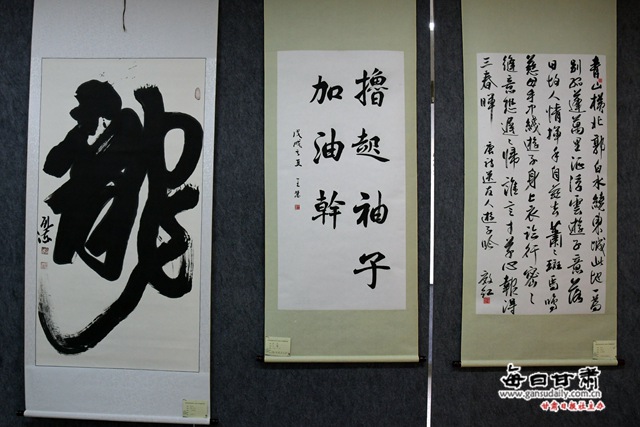 龍
擼起袖子
加油幹
戊戌之夏
青山橫北郭白水繞東城此地一為
別孤蓬萬里征浮雲遊子意落
日故人情揮手自茲去蕭々班馬鳴
慈母手中綫遊子身上衣臨行密々
縫意恐遲々歸誰言寸草心報得
三春暉 唐詩送友人遊子吟
每日甘肃
www.gansudaily.com.cn
甘肃日报社主办